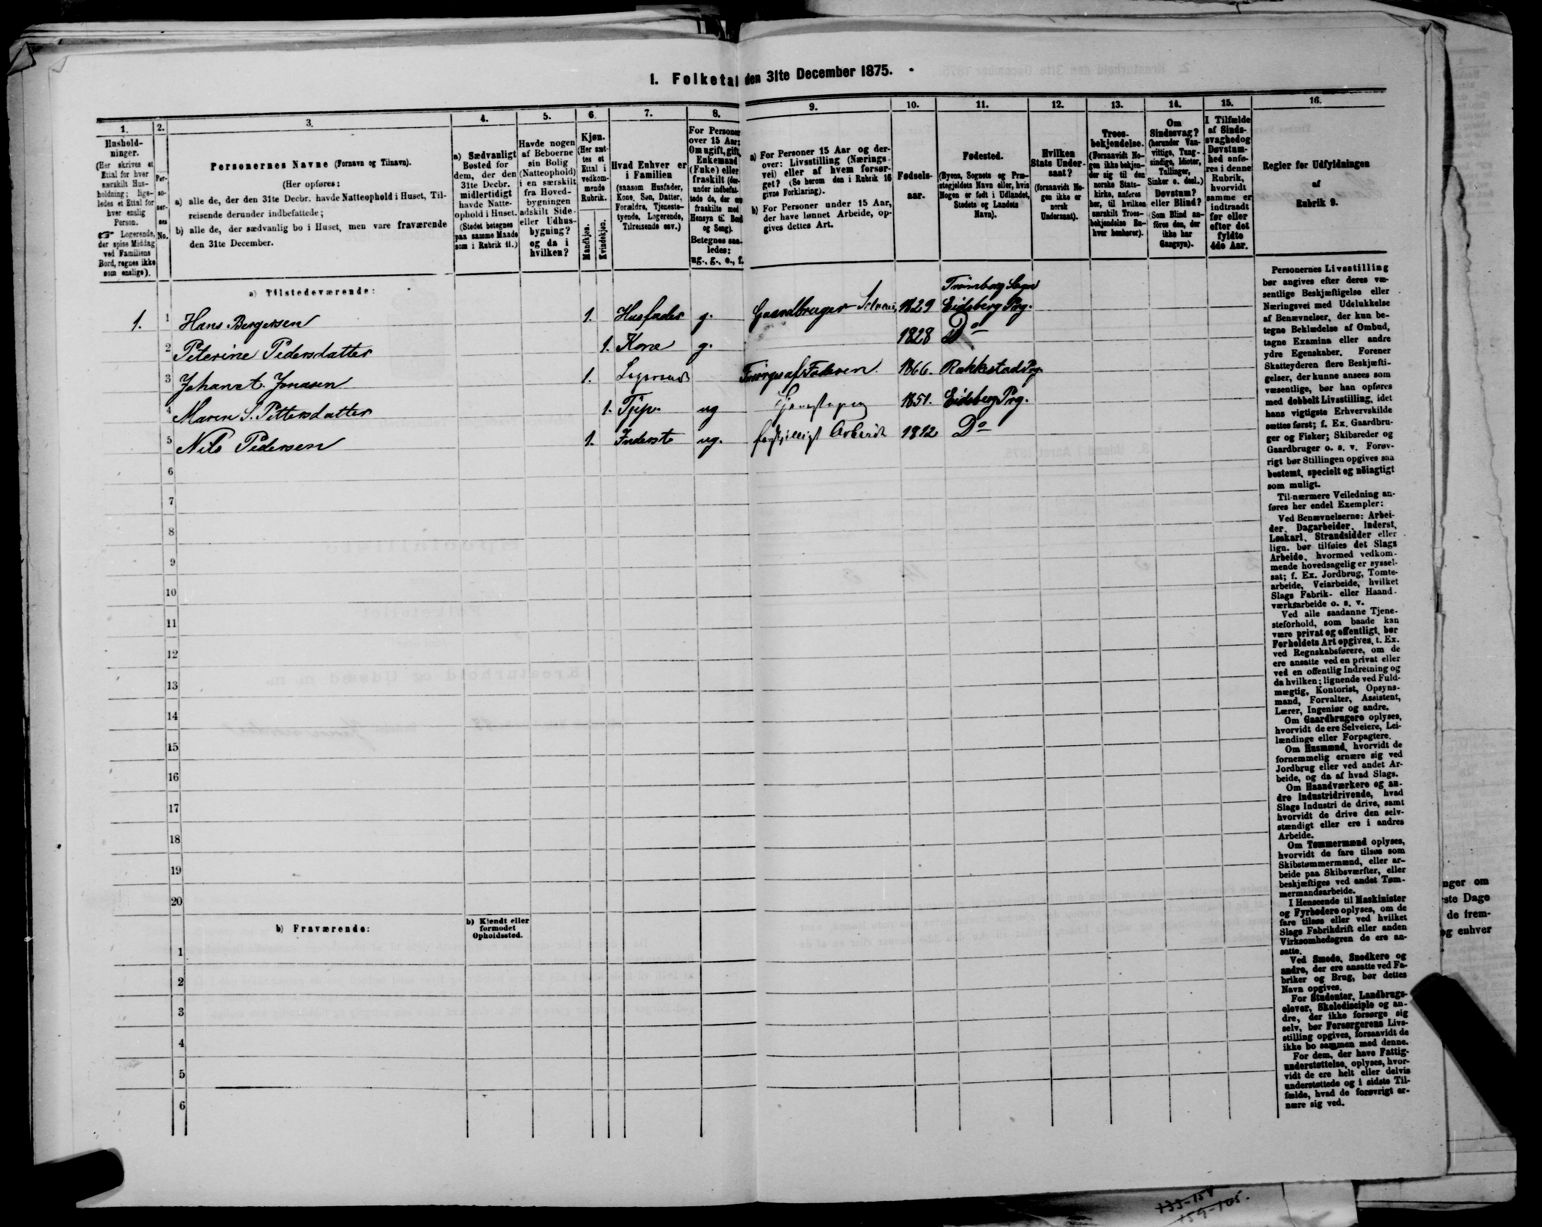 1. Folketal den 31te December 1875.
1.
Hushold-
ninger.
(Her skrives et
Ettal for hver
særskilt Hus-
holdning; lige-
ledes et Ettal for
hver enslig
Person.
☞ Logerende,
der spise Middag
ved Familiens
Bord, regnes ikke
som enslige).
2.
Per-
so-
ner-
nes
No.
3.
Personernes Navne (Fornavn og Tilnavn).
(Her opføres:
a) alle de, der den 31te Decbr. havde Natteophold i Huset, Til-
reisende derunder indbefattede;
b) alle de, der sædvanlig bo i Huset, men vare fraværende
den 31te December.
4.
a) Sædvanligt
Bosted for
dem, der den
31te Decbr.
midlertidigt
havde Natte-
ophold i Huset.
(Stedet betegnes
paa samme Maade
som i Rubrik 11.)
5.
Havde nogen
af Beboerne
sin Bolig
(Natteophold)
i en særskilt
fra Hoved-
bygningen
adskilt Side-
eller Udhus-
bygning?
og da i
hvilken?
6.
Kjøn.
(Her sæt-
tes et
Ettal i
vedkom-
mende
Rubrik.
Mandkjøn.
Kvindekjøn.
7.
Hvad Enhver er
i Familien
(saasom Husfader,
Kone, Søn, Datter,
Forældre, Tjeneste-
tyende, Logerende,
Tilreisende osv.)
8.
For Personer
over 15 Aar:
Om ugift, gift,
Enkemand
(Enke) eller
fraskilt (der-
under indbefat-
tede de, der ere
fraskilte med
Hensyn til Bord
og Seng).
Betegnes saa-
ledes:
ug., g., e., f.
9.
a) For Personer 15 Aar og der-
over: Livsstilling (Nærings-
vei) eller af hvem forsør-
get? (Se herom den i Rubrik 16
givne Forklaring).
b) For Personer under 15 Aar,
der have lønnet Arbeide, op-
gives dettes Art.
10.
Fødsels-
aar.
11.
Fødested.
(Byens, Sognets og Præ-
stegjeldets Navn eller, hvis
Nogen er født i Udlandet,
Stedets og Landets
Navn).
12.
Hvilken
Stats Under-
saat?
(forsaavidt No-
gen ikke er
norsk
Undersaat).
13.
Troes-
bekjendelse.
(Forsaavidt No-
gen ikke bekjen-
der sig til den
norske Stats-
kirke, anføres
her, til hvilken
særskilt Troes-
bekjendelse En-
hver henhører).
14.
Om
Sindssvag?
(herunder Van-
vittige, Tung-
sindige, Idioter,
Tullinger,
Sinker o. desl.)
Døvstum?
eller Blind?
(Som Blind an-
føres den, der
ikke har
Gangsyn).
15.
I Tilfælde
af Sinds-
svaghed og
Døvstum-
hed anfø-
res i denne
Rubrik,
hvorvidt
samme er
indtraadt
før eller
efter det
fyldte
4de Aar.
16.
Regler for Udfyldningen
af
Rubrik 9.
a) Tilstedeværende:
Trømborg Sogn
1. 1 Hans Bergersen 1. Husfader g. Gaardbruger Selveier 1829 Eidsberg Prg.
2 Peterine Pedersdatter 1. Kone g. 1828 Do
3 Johan A. Jonasen 1. Logerende Forsørges af Faderen 1866. Rakkestad Prg.
4 Maren S. Pettersdatter 1. Tjp. ug Tjenestepige 1851. Eidsberg Prg.
5 Nils Pedersen 1. Inderst ug. forskjelligt Arbeide 1812 Do
6
7
8
9
10
11
12
13
14
15
16
17
18
19
20
b) Fraværende:
b) Kjendt eller
formodet
Opholdssted.
1
2
3
4
5
6
Personernes Livsstilling
bør angives efter deres væ-
sentlige Beskjæftigelse eller
Næringsvei med Udelukkelse
af Benævnelser, der kun be-
tegne Beklædelse af Ombud,
tagne Examina eller andre
ydre Egenskaber. Forener
Skatteyderen flere Beskjæfti-
gelser, der kunne ansees som
væsentlige, bør han opføres
med dobbelt Livsstilling, idet
hans vigtigste Erhvervskilde
sættes først; f. Ex. Gaardbru-
ger og Fisker; Skibsreder og
Gaardbruger o. s. v. Forøv-
rigt bør Stillingen opgives saa
bestemt, specielt og nøiagtigt
som muligt.
Til nærmere Veiledning an-
føres her endel Exempler:
Ved Benævnelserne: Arbei-
der, Dagarbeider, Inderst,
Løskarl, Strandsidder eller
lign. bør tilføies det Slags
Arbeide, hvormed vedkom-
mende hovedsagelig er syssel-
sat; f. Ex. Jordbrug, Tomte-
arbeide, Veiarbeide, hvilket
Slags Fabrik- eller Haand-
værksarbeide o. s. v.
Ved alle saadanne Tjene-
steforhold, som baade kan
være privat og offentligt, bør
Forholdets Art opgives, t. Ex.
ved Regnskabsførere, om de
ere ansatte ved en privat eller
ved en offentlig Indretning og
da hvilken; lignende ved Fuld-
mægtig, Kontorist, Opsyns-
mand, Forvalter, Assistent,
Lærer, Ingeniør og andre.
Om Gaardbrugere oplyses,
hvorvidt de ere Selveiere, Lei-
lændinge eller Forpagtere.
Om Husmænd, hvorvidt de
fornemmelig ernære sig ved
Jordbrug eller ved andet Ar-
beide, og da af hvad Slags.
Om Haandværkere og an-
dre Industridrivende, hvad
Slags Industri de drive, samt
hvorvidt de drive den selv-
stændigt eller ere i andres
Arbeide.
Om Tømmermænd oplyses,
hvorvidt de fare tilsøs som
Skibstømmermænd, eller ar-
beide paa Skibsværfter, eller
beskjæftiges ved andet Tøm-
mermandsarbeide.
I Henseende til Maskinister
og Fyrbødere oplyses, om de
fare tilsøs eller ved hvilket
Slags Fabrikdrift eller anden
Virksomhedsgren de ere an-
satte.
Ved Smede, Snedkere og
andre, der ere ansatte ved Fa-
briker og Brug, bør dettes
Navn opgives.
For Studenter, Landbrugs-
elever, Skoledisciple og an-
dre, der ikke forsørge sig
selv, bør Forsørgerens Livs-
stilling opgives, forsaavidt de
ikke bo sammen med denne.
For dem, der have Fattig-
understøttelse, oplyses, hvor-
vidt de ere helt eller delvis
understøttede og i sidste Til-
fælde, hvad de forøvrigt er-
nære sig ved.
nger om
ste Dage
de frem-
og enhver
133-158
159-165.